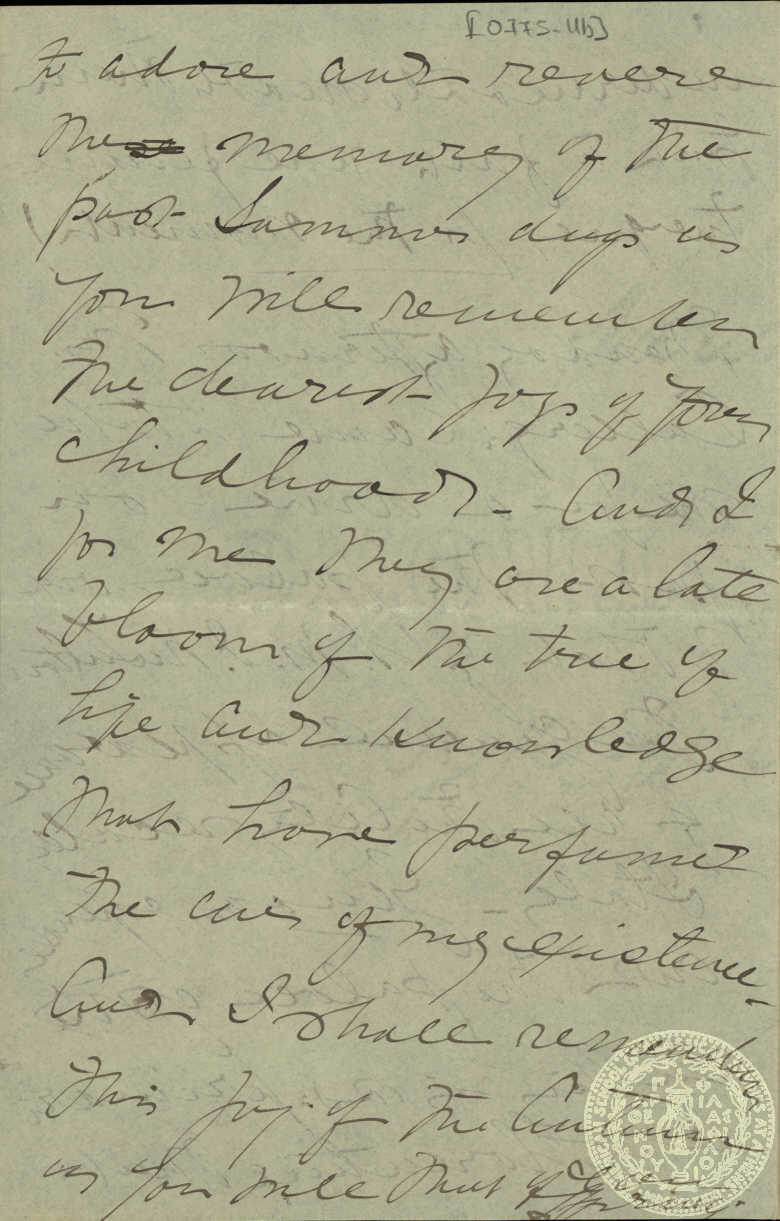 [0775-11b]
to adore and revere
the memory of the
past Summer days as
you will remember
the dearest joys of your
childhood - And I
for me they are a late
bloom of the tree of
life and knowledge
that have perfumed
the air of my existence -
And I shall remember
this joy of the Autumn
as you will that of